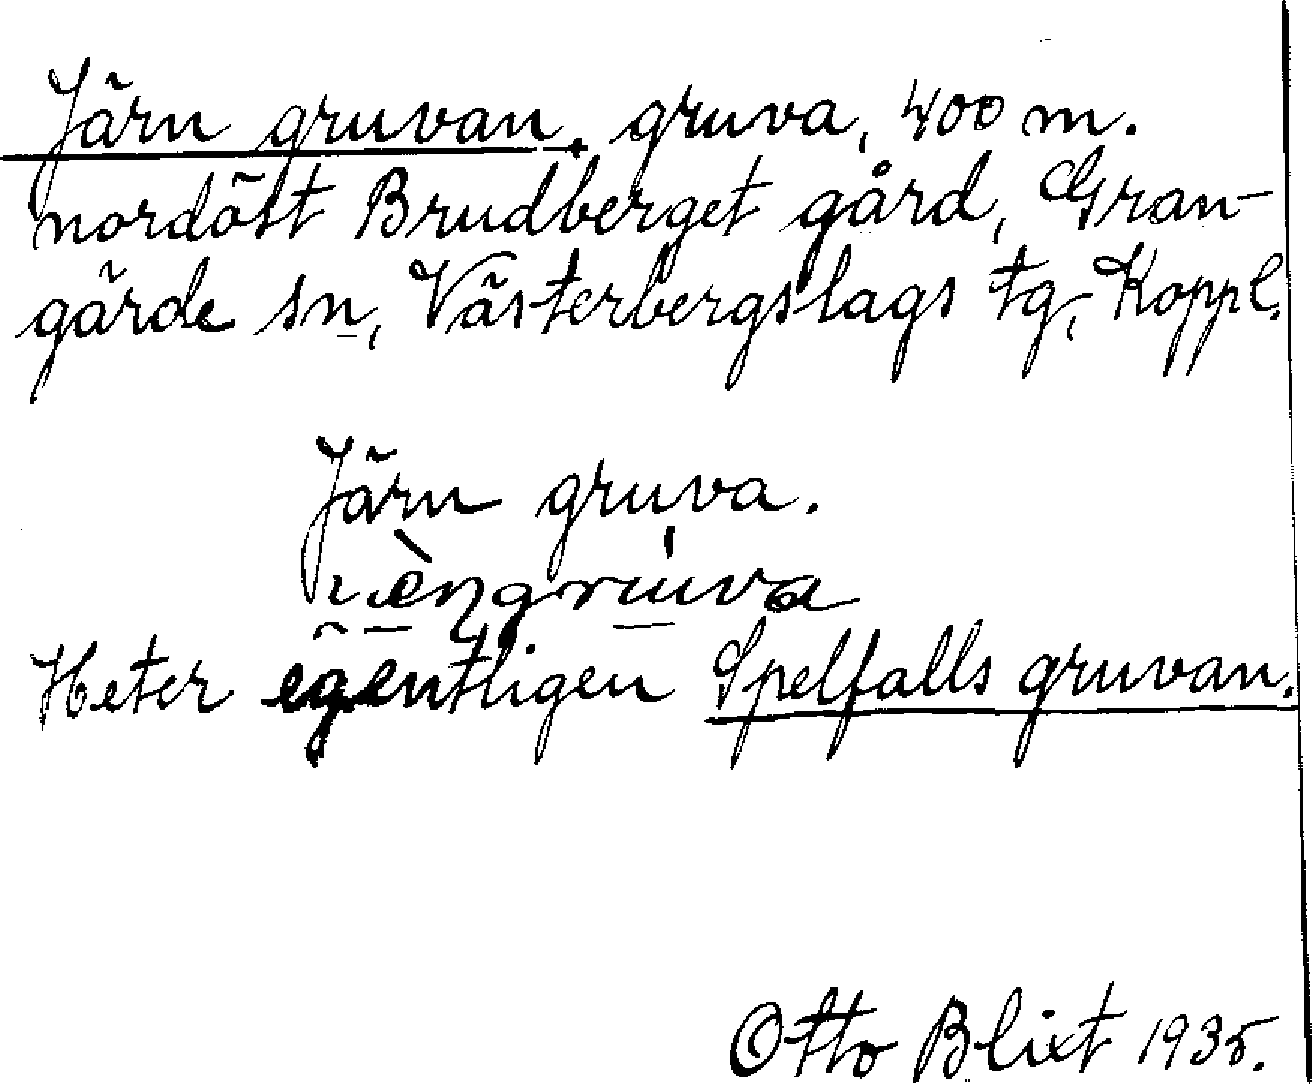 Järn gruvan, gruva, 400 m.
nordöst Brudberget gård, Gran-
gärde sn, Västerbergslags tg, Koppl.
Järn gruva.
Heter egentligen Spelfalls gruvan.
Otto Blixt 1935.